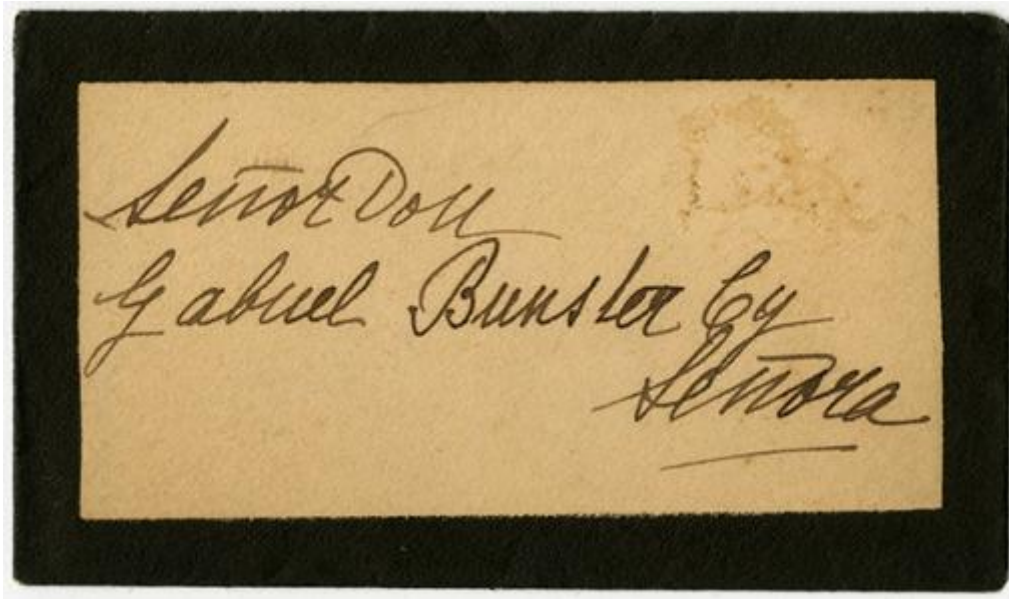 Señor Don
Gabriel Bunster C y
Señora